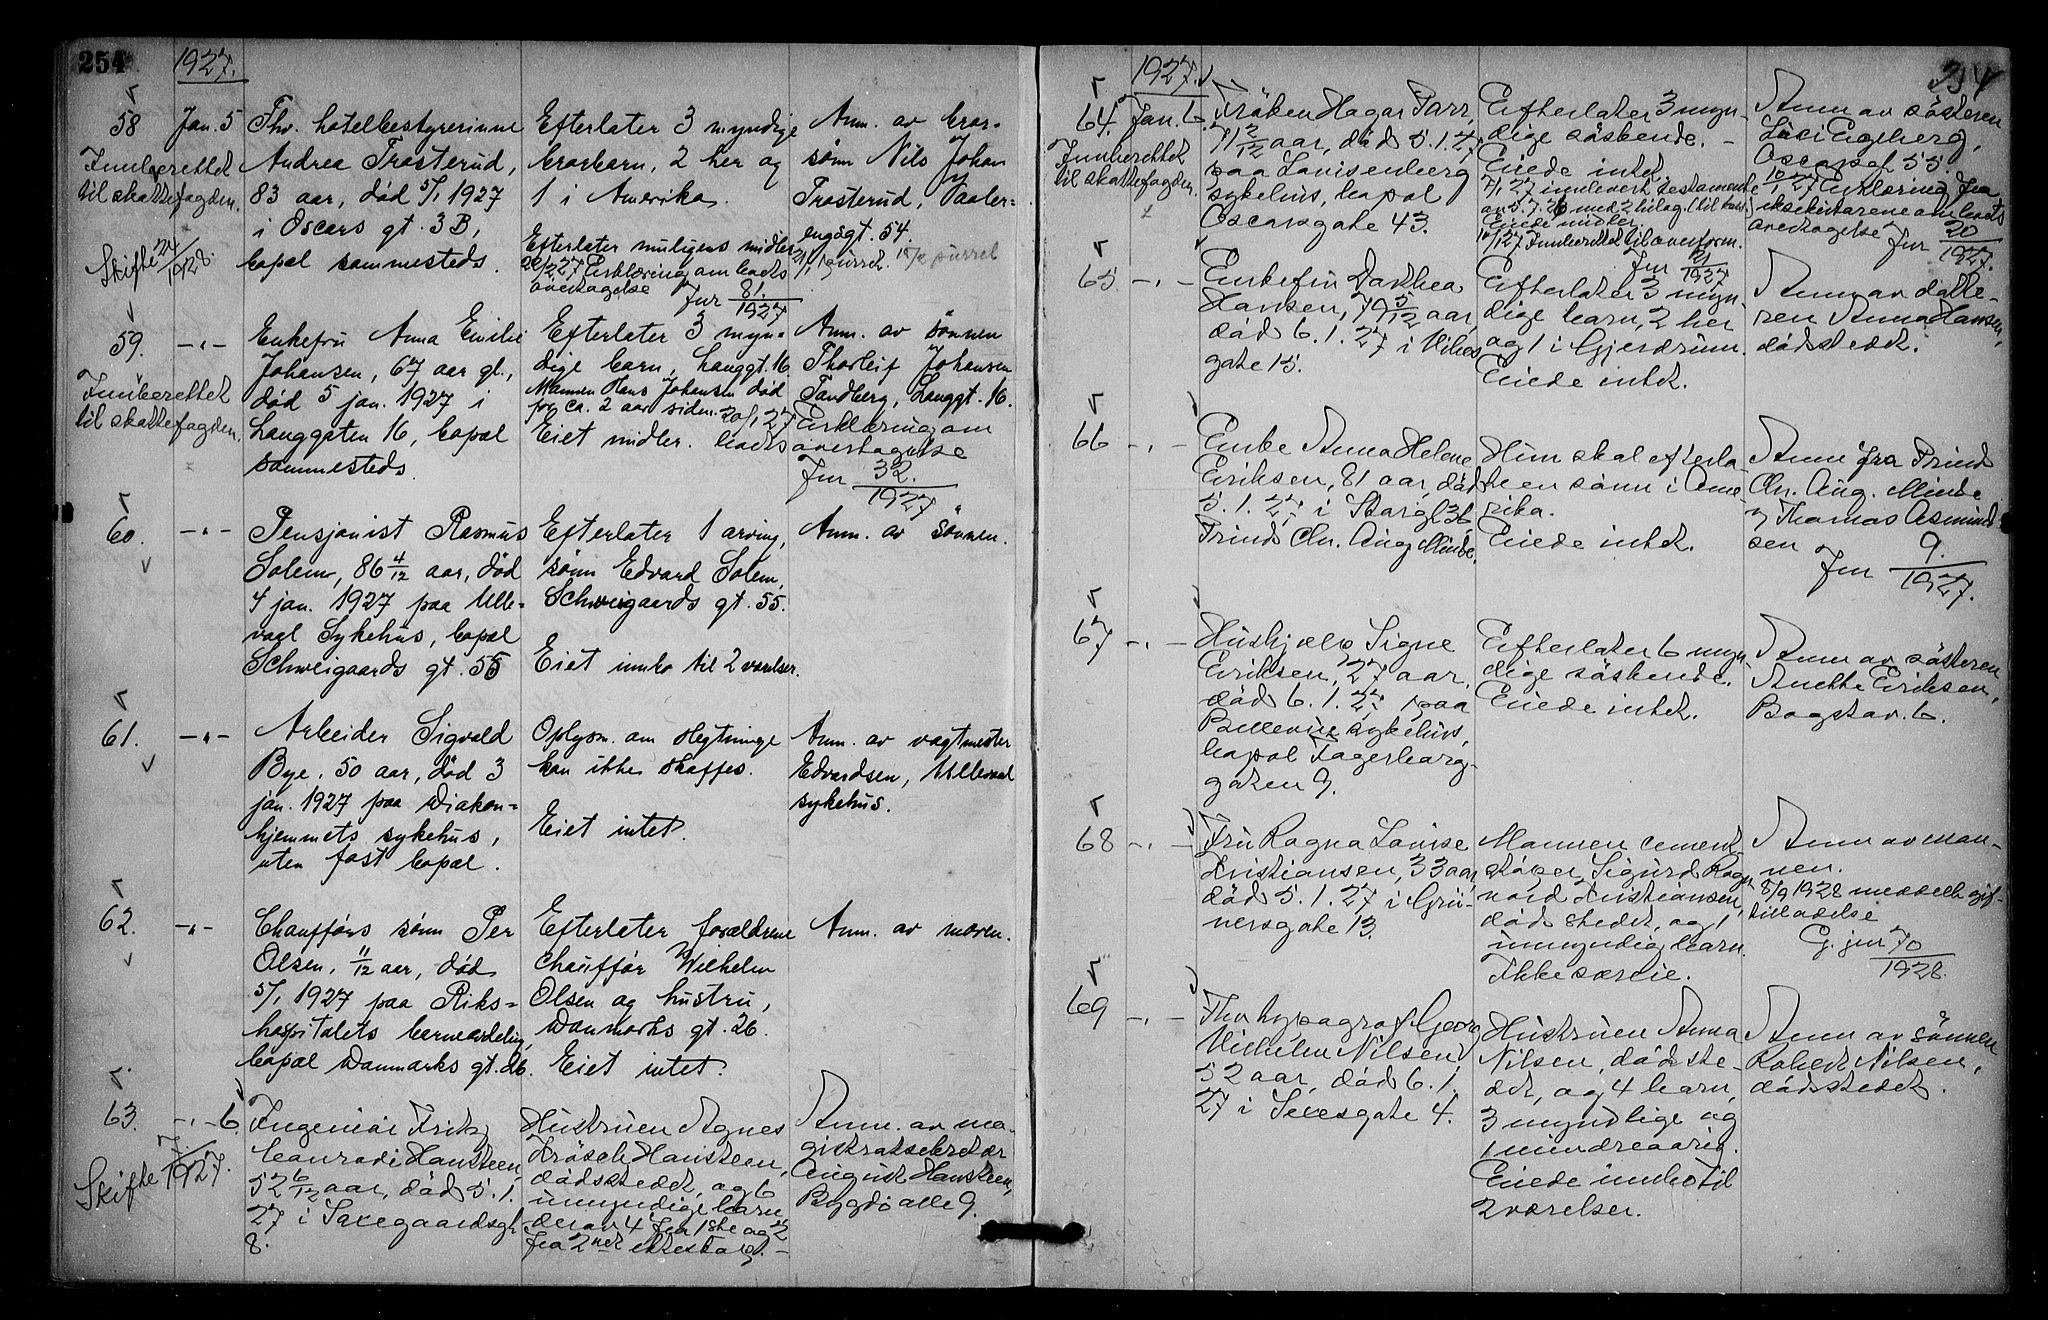 254
1927.
58
Jan. 5
Innberettet
til skattefogden.
Skifte 24/1928.
Fhv. hotelbestyrerinne
Andrea Trosterud,
83 aar, død 5/1 1927
i Oscars gt. 3B,
bopæl sammesteds.
Efterlater 3 myndige
brorbarn, 2 her og
1 i Amerika.
Efterlater muligens midler
Erklæring om boets
overtagelse Jnr 81./1927
Anm. av bror-
sønn Nils Johan
Trosterud, Vaaler-
engsgt. 54.
purret. purret
59.
-"-
Innberettet
til skattefogden.
Enkefru Anna Emilie
Johansen, 67 aar gl.,
død 5 jan. 1927 i
Langgaten 16, bopæl
sammesteds.
Efterlater 3 myn-
dige barn, Langgt. 16
Mannen Hans Johansen død
for ca. 2 aar siden.
Eiet midler.
Anm. av sønnen
Thorleif Johansen
Tandberg, Langgt. 16.
20/1 27 Erklæring om
boets overtagelse
Jnr 32./1927
60.
-"-
Pensjonist Rasmus
Solem, 86 4/12 aar, død
4 jan. 1927 paa Ulle-
vaal Sykehus, bopæl
Schweigaards gt. 55
Efterlater 1 arving,
sønn Edvard Solem,
Schweigaards gt. 55.
Eiet innbo til 2 værelser.
Anm. av sønnen.
61.
-"-
Arbeider Sigvald
Bye, 50 aar, død 3
jan. 1927 paa Diakon-
hjemmets sykehus,
uten fast bopæl.
Oplysn. om slegtninge
kan ikke skaffes.
Eiet intet.
Anm. av vagtmester
Edvardsen, Ullevaal
sykehus.
62.
-"-
Chaufførs sønn Per
Olsen, 11/12 aar, død
5/1 1927 paa Riks-
hospitalets barneavdeling,
bopæl Danmarks gt. 26.
Efterlater forældrene
Chauffør Wilhelm
Olsen og hustru,
Danmarks gt. 26.
Eiet intet.
Anm. av moren.
63.
-"- 6.
Skifte 7./1927.
Ingeniør Fritz
Conradi Hansteen
52 6/12 aar, død 5.1.
27 i Saxegaardsgt
8.
Hustruen Agnes
Hansteen,
dødsstedet, og 6
umyndige barn
derav 4 fra 1ste og 2
fra 2net ekteskap.
Anm. av ma-
gistratsekretær
August Hansteen,
Bygdø alle 9.
1927.
254
64.
Jan. 6.
Innberettet
til skattefogden.
Frøken Hagar Parr,
71 2/12 aar, død 5.1.27
paa Lovisenberg
sykehus, bopæl
Oscarsgate 43.
Efterlater 3 myn-
dige søskende. -
Eiede intet.
7/1 27 innlevert testamente
av 5.7.26 med 2 bilag.
Eiede midler
10/1 27 Innberettet til overform.
Jnr 21/1927
Anm av søsteren
Engberg,
Oscarsgt 55
10/1 27 Erklæring fra
eksekutorene om boets
overtagelse Jnr 20/1927.
65
-"-
Enkefru Dorthea
Hansen, 79 5/12 aar,
død 6.1.27 i Vibes
gate 15.
Efterlater 3 myn-
dige barn, 2 her
og 1 i Gjerdrum.
Eiede intet.
Anm av datte-
ren Anna Hansen,
dødsstedet.
66
-"-
Enke Anna Helene
Eriksen, 81 aar, død
5.1.27 i Storgt 36
Hun skal efterla-
te en sønn i Ame-
rika.
Eiede intet.
Anm fra
Chr. Aug. Minde
v/ Thomas Asmund-
sen
Jnr 9./1927.
67
-"-
Hushjælp Signe
Eriksen, 27 aar,
død 6.1.27 paa
Bellevue sykehus,
bopæl Fagerborg-
gaten 9.
Efterlater 6 myn-
dige søskende.
Eiede intet.
Anm av søsteren
Anette Eriksen,
Bogstav. 6.
68
-"-
Fru Ragna Lovise
Kristiansen, 33 aar,
død 5.1.27 i Grü-
nersgate 13.
Mannen cement-
støper Sigurd Rag-
nvald Kristiansen,
dødsstedet, og 1
umyndig barn.
Ikke særeie.
Anm av man-
nen.
8/9 1928 meddelt gif-
tilladelse
G. jnr 70/1928.
69
-"-
Fhv typograf Georg
Vilhelm Nilsen,
52 aar, død 6.1.
27 i Sexesgate 4.
Hustruen Anna
Nilsen, dødsste-
det, og 4 barn,
3 myndige og
1 mindreaarig.
Eiede innbo til
2 værelser.
Anm av sønnen
Robert Nilsen,
dødsstedet.